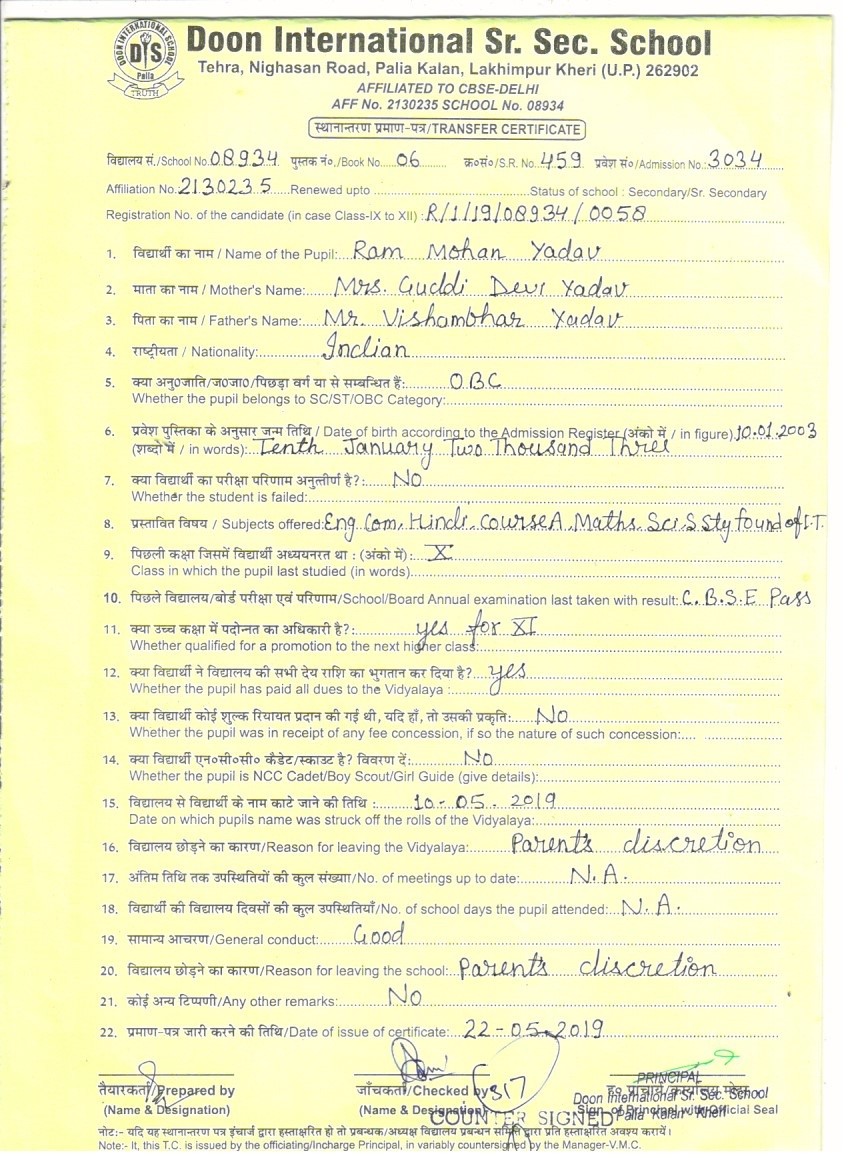 DOON INTERNATIONAL SCHOOL
DIS
Palia
TRUTH
Doon International Sr. Sec. School
Tehra, Nighasan Road, Palia Kalan, Lakhimpur Kheri (U.P.) 262902
AFFILIATED TO CBSE-DELHI
AFF No. 2130235 SCHOOL No. 08934
स्थानान्तरण प्रमाण-पत्र/TRANSFER CERTIFICATE
विद्यालय सं./School No. 08934 पुस्तक नं०/Book No. 06 क्र०सं०/S.R. No. 459 प्रवेश सं०/Admission No. 3034
Affiliation No. 2130235 Renewed upto Status of school : Secondary/Sr. Secondary
Registration No. of the candidate (in case Class-IX to XII) : R/1/19/08934/0058
1. विद्यार्थी का नाम / Name of the Pupil: Ram Mohan Yadav
2. माता का नाम / Mother's Name: Mrs. Guddi Devi Yadav
3. पिता का नाम / Father's Name: Mr. Vishambhar Yadav
4. राष्ट्रीयता / Nationality: Indian
5. क्या अनु०जाति/ज०जा०/पिछड़ा वर्ग या से सम्बन्धित हैं: OBC
Whether the pupil belongs to SC/ST/OBC Category:
6. प्रवेश पुस्तिका के अनुसार जन्म तिथि / Date of birth according to the Admission Register (अंको में / in figure) 10.01.2003
(शब्दो में / in words): Tenth January Two Thousand Three
7. क्या विद्यार्थी का परीक्षा परिणाम अनुत्तीर्ण है?: No
Whether the student is failed:
8. प्रस्तावित विषय / Subjects offered: Eng Com, Hindi course A, Maths, Sci. S Sty found of I.T.
9. पिछली कक्षा जिसमें विद्यार्थी अध्ययनरत था : (अंको में): X
Class in which the pupil last studied (in words)
10. पिछले विद्यालय/बोर्ड परीक्षा एवं परिणाम/School/Board Annual examination last taken with result: C.B.S.E Pass
11. क्या उच्च कक्षा में पदोन्नत का अधिकारी है?: yes for XI
Whether qualified for a promotion to the next higher class:
12. क्या विद्यार्थी ने विद्यालय की सभी देय राशि का भुगतान कर दिया है? yes
Whether the pupil has paid all dues to the Vidyalaya :
13. क्या विद्यार्थी कोई शुल्क रियायत प्रदान की गई थी, यदि हाँ, तो उसकी प्रकृति: No
Whether the pupil was in receipt of any fee concession, if so the nature of such concession:
14. क्या विद्यार्थी एन०सी०सी० कैडेट/स्काउट है? विवरण दें: No
Whether the pupil is NCC Cadet/Boy Scout/Girl Guide (give details):
15. विद्यालय से विद्यार्थी के नाम काटे जाने की तिथि : 10-05-2019
Date on which pupils name was struck off the rolls of the Vidyalaya:
16. विद्यालय छोड़ने का कारण/Reason for leaving the Vidyalaya: Parents discretion
17. अंतिम तिथि तक उपस्थितियों की कुल संख्या/No. of meetings up to date: N.A.
18. विद्यार्थी की विद्यालय दिवसों की कुल उपस्थितियाँ/No. of school days the pupil attended: N.A.
19. सामान्य आचरण/General conduct: Good
20. विद्यालय छोड़ने का कारण/Reason for leaving the school: Parents discretion
21. कोई अन्य टिप्पणी/Any other remarks: No
22. प्रमाण-पत्र जारी करने की तिथि/Date of issue of certificate: 22-05-2019
PRINCIPAL
तैयारकर्ता/Prepared by जाँचकर्ता/Checked by ह० प्राचार्य/कार्यालय
Doon International Sr. Sec. School
Palia Kalan - Kheri
(Name & Designation) (Name & Designation) Sign of Principal with Official Seal
COUNTER SIGNED
नोट:- यदि यह स्थानान्तरण पत्र इंचार्ज द्वारा हस्ताक्षरित हो तो प्रबन्धक/अध्यक्ष विद्यालय प्रबन्धन समिति द्वारा प्रति हस्ताक्षरित अवश्य करायें।
Note:- It, this T.C. is issued by the officiating/Incharge Principal, in variably countersigned by the Manager-V.M.C.